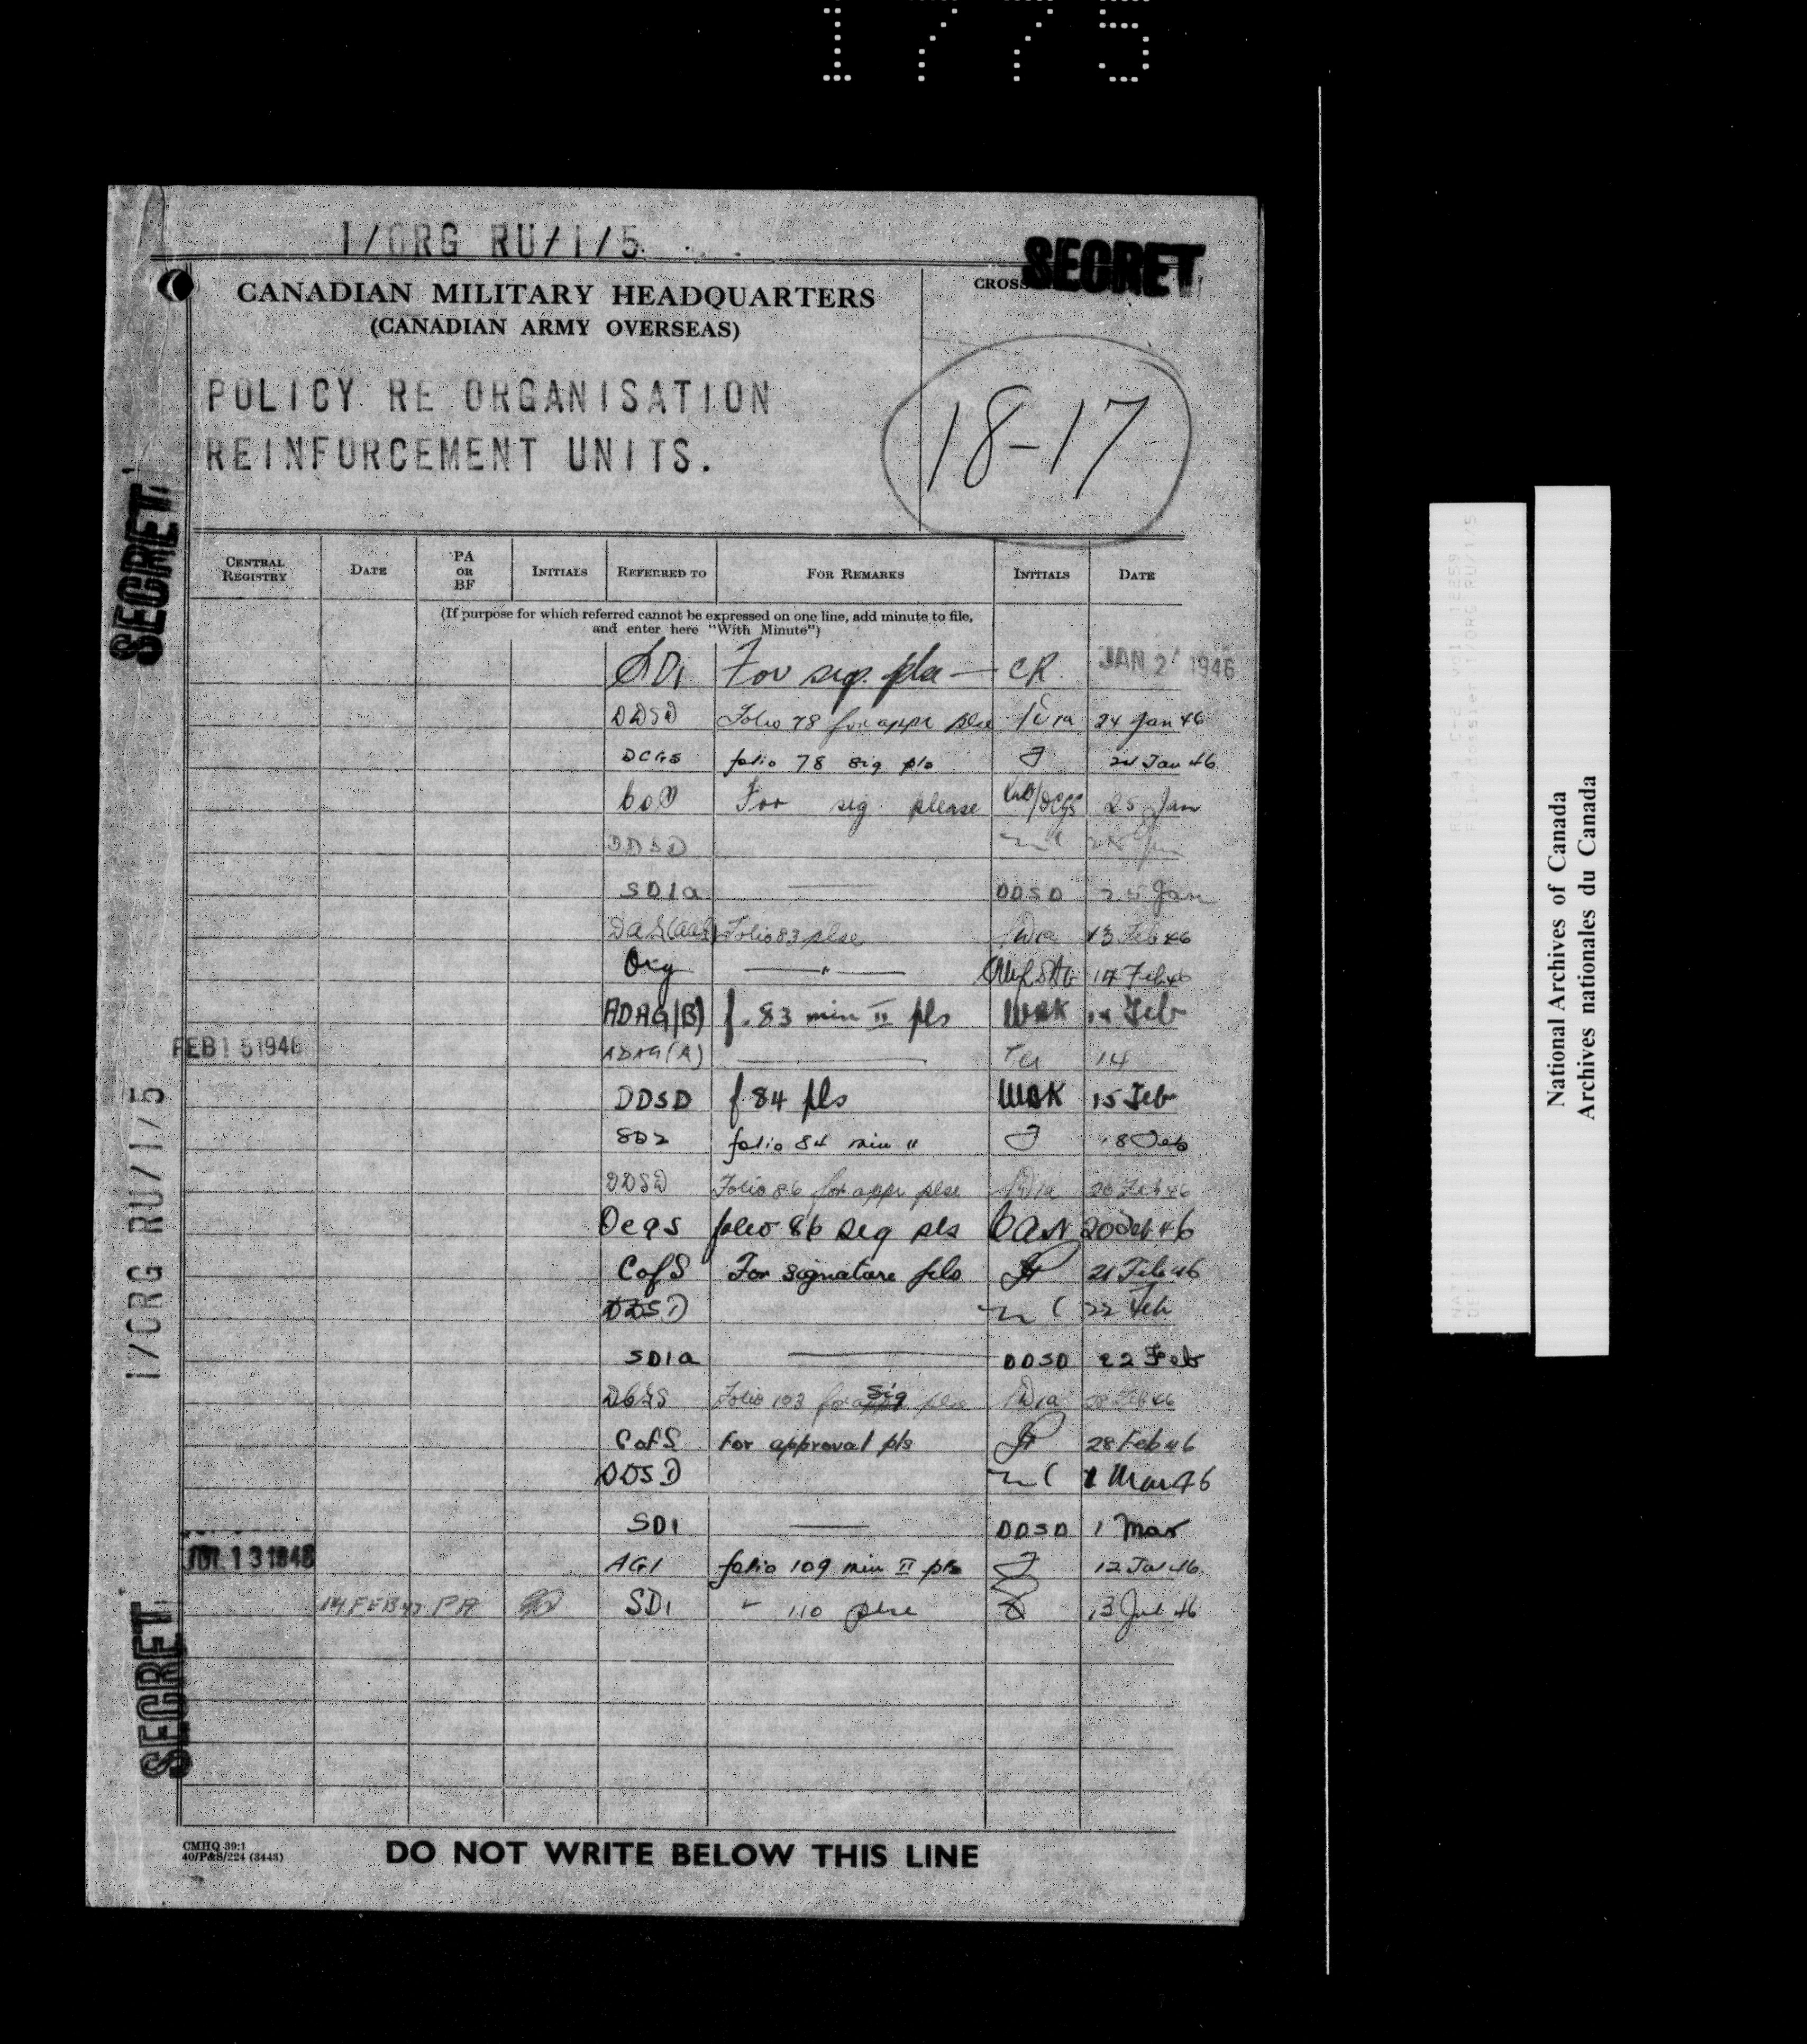 1775
1/ORG RU/1/5
SECRET
CANADIAN MILITARY HEADQUARTERS
(CANADIAN ARMY OVERSEAS)
CROSS
POLICY RE ORGANISATION
REINFORCEMENT UNITS.
18-17
SECRET
CENTRAL REGISTRY DATE PA OR BF INITIALS REFERRED TO FOR REMARKS INITIALS DATE
(If purpose for which referred cannot be expressed on one line, add minute to file,
and enter here "With Minute")
SD1 For sig. pls — CR. JAN 2 1946
DDSD Folio 78 for appr plse 24 Jan 46
DCGS folio 78 sig pls 24 Jan 46
CoS For sig please /DCGS 25 Jan
DDSD 25 Jan
SD1a — DDSD 25 Jan
Folio 83 plse 13 Feb 46
Org — " — 14 Feb 46
ADAG(B) f. 83 min II pls WBK 14 Feb
FEB 15 1946 ADAG(A) — 14
DDSD f 84 pls WBK 15 Feb
SD2 folio 84 min " 18 Feb
DDSD Folio 86 for appr plse 20 Feb 46
DCGS folio 86 sig pls 20 Feb 46
CofS For signature pls 21 Feb 46
DDSD 22 Feb
SD1a — DDSD 22 Feb
DCGS Folio 103 for sig plse 28 Feb 46
CofS For approval pls 28 Feb 46
DDSD 1 Mar 46
SD1 — DDSD 1 Mar
JUL 13 1946 AG1 folio 109 min II pls 12 Jul 46.
14 FEB 47 PA SD1 " 110 plse 13 Jul 46
1/ORG RU/1/5
SECRET
CMHQ 39:1
40/P&S/224 (3443)
DO NOT WRITE BELOW THIS LINE
National Archives of Canada
Archives nationales du Canada